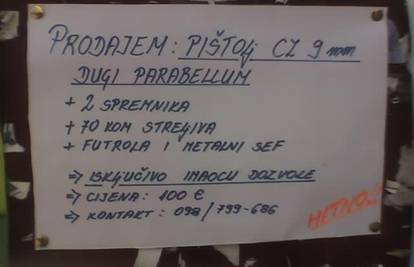 PRODAJEM: PIŠTOLJ CZ 9 mm
DUGI PARABELLUM
+ 2 SPREMNIKA
+ 70 KOM STRELJIVA
+ FUTROLA I METALNI SEF
⇒ ISKLJUČIVO IMAOCU DOZVOLE
⇒ CIJENA: 100 €
⇒ KONTAKT: 098/799-686
HITNO!